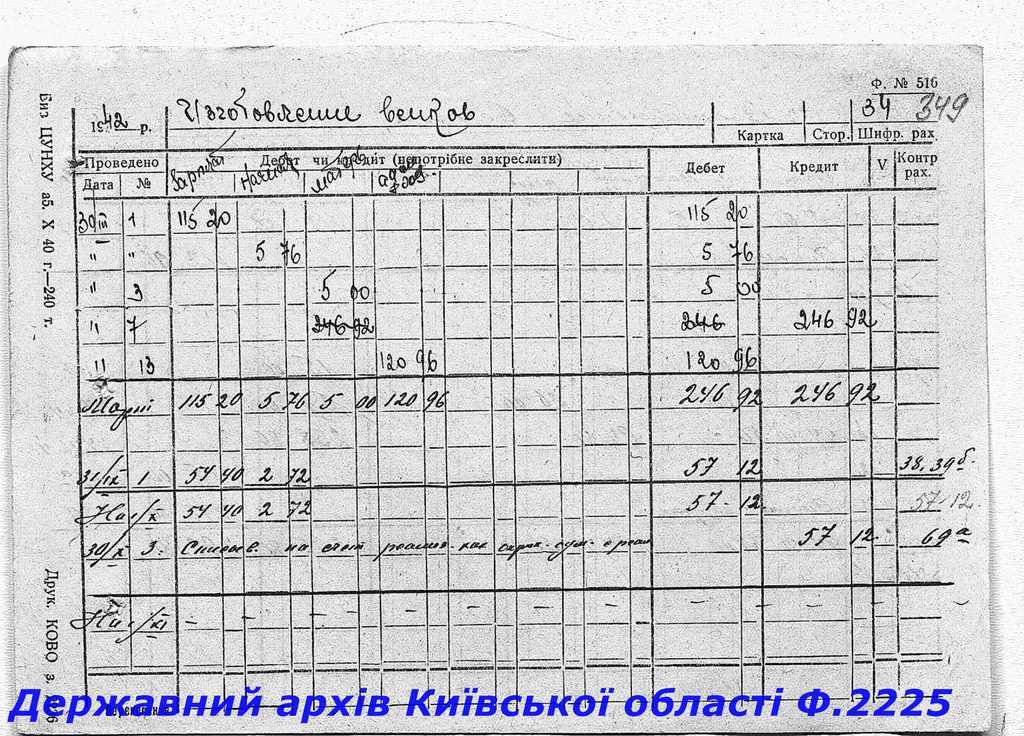 Ф. № 516
1942 р. Изготовление венков 34 349
Картка Стор. Шифр. рах.
Проведено Дебет чи кредит (непотрібне закреслити) Дебет Кредит V Контр рах.
Дата № Зарплата Начисл.
30/III 1 115 20 115 20
" " 5 76 5 76
" 3 5 00 5 00
" 7 246 92 246 246 92
" 13 120 96 120 96
Март 115 20 5 76 5 00 120 96 246 92 246 92
31/IX 1 54 40 2 72 57 12 38, 39б.
На 1/X 54 40 2 72 57-12. 57-12.
30/X 3. на счет как 57 12. 69а
На 1/XI - - - - - - - - - -
Биз ЦУНКУ аб. X 40 г.—240 т.
Друк. КОВО з.
Державний архів Київської області Ф.2225